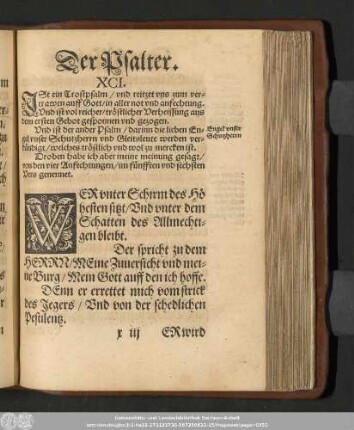 Der Psalter.
XCI.
ISt ein Trostpsalm / vnd reitzet vns zum ver-
trawen auff Gott / in aller not vnd anfechtung.
Vnd ist vol reicher / tröstlicher Verheissung aus
dem ersten Gebot gesponnen vnd gezogen.
Vnd ist der ander Psalm / darinn die lieben En-
gel vnser Schutzherrn vnd Gleitsleute werden ver-
kündigt / welches tröstlich vnd wol zu mercken ist.
Engel vnser
Schutzherrn
Droben habe ich aber meine meinung gesagt /
von den vier Anfechtungen / im fünfften vnd sechsten
Vers genennet.
WER vnter Schirm des Hö
hesten sitzt / Vnd vnter dem
Schatten des Allmechti-
gen bleibt.
Der spricht zu dem
HERRN / MEine Zuuersicht vnd mei-
ne Burg / Mein Gott auff den ich hoffe.
DEnn er errettet mich vom strick
des Jegers / Vnd von der schedlichen
Pestilentz.
x iij ER wird